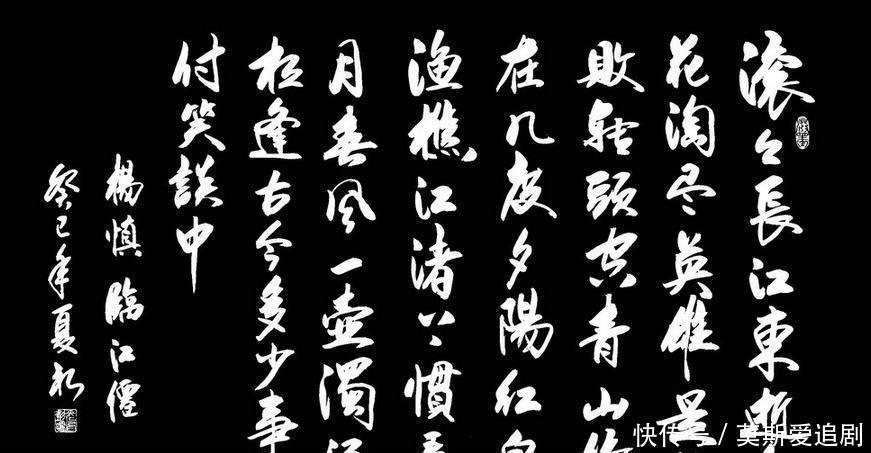 滚々長江東逝
花淘尽英雄是
敗轉頭空青山依
在几度夕陽紅白
渔樵江渚上慣看
月春风一壶濁酒
相逢古今多少事
付笑談中
楊慎臨江僊
癸巳年夏
快传号 / 莫斯爱追剧